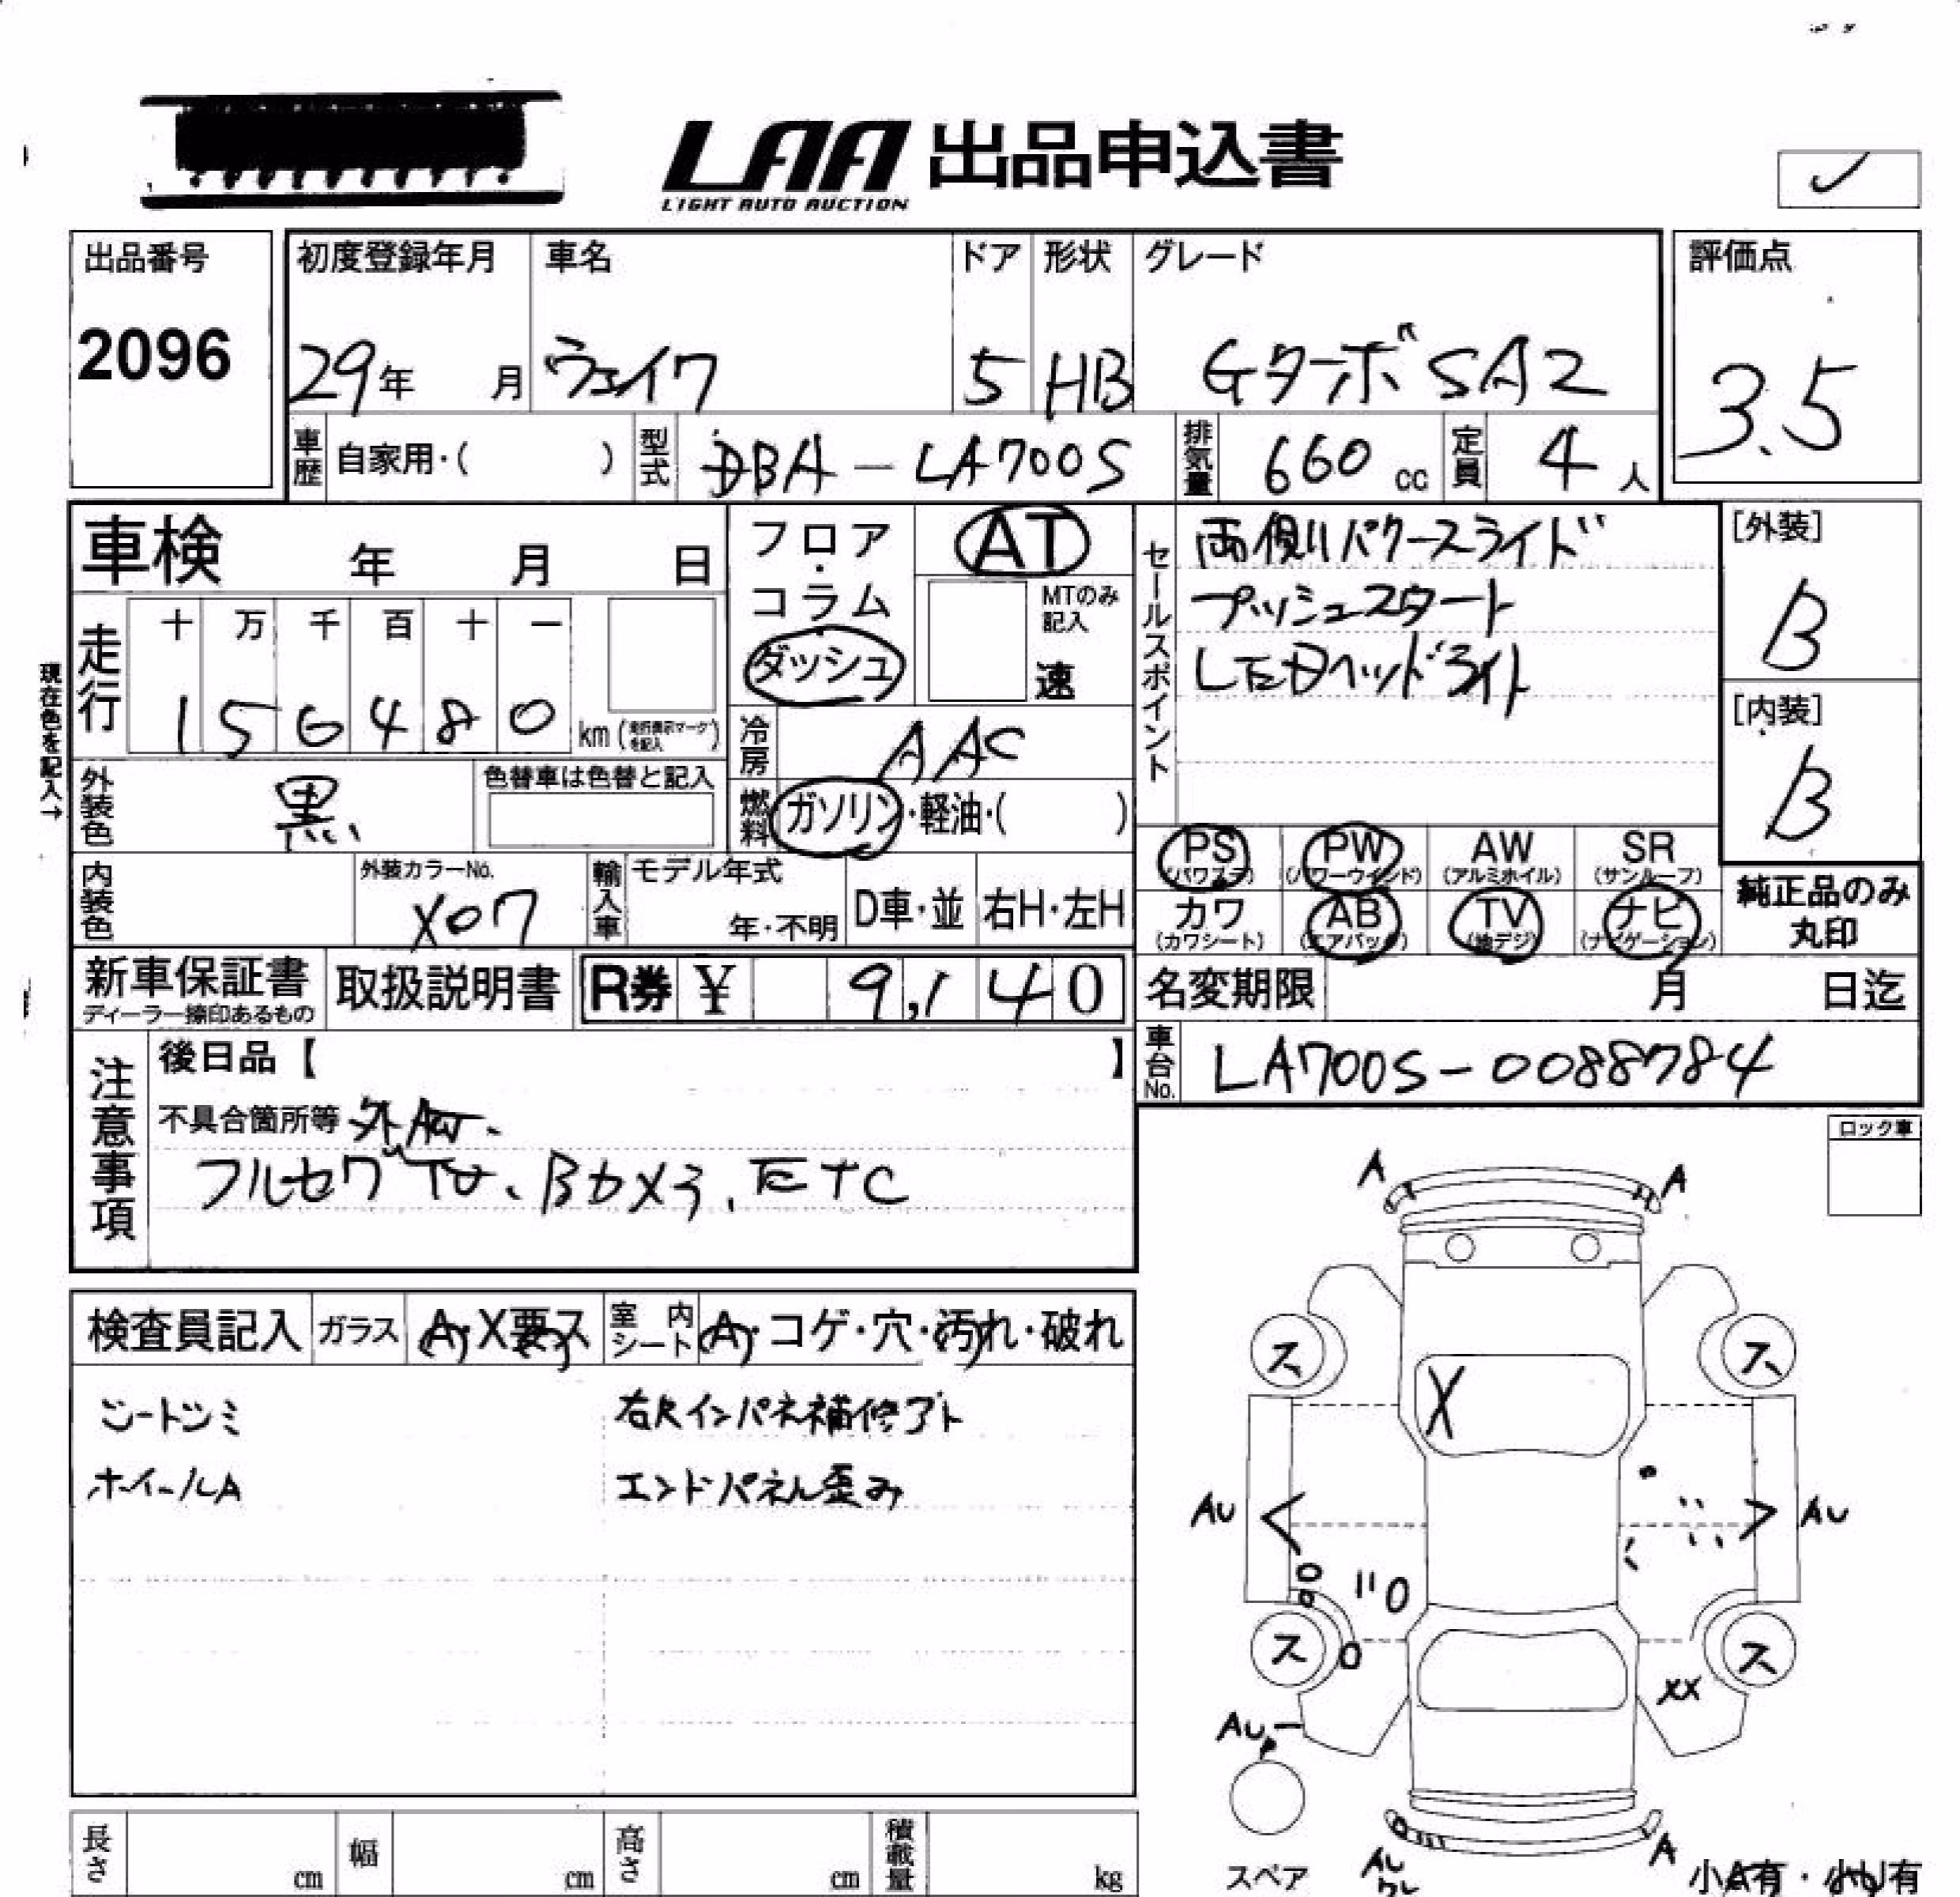 LAA 出品申込書
LIGHT AUTO AUCTION
出品番号
2096
初度登録年月 車名 ドア 形状 グレード
29年 月 ウェイク 5 HB Gターボ SA2
評価点
3.5
車歴 自家用・( ) 型式 DBA-LA700S 排気量 660 cc 定員 4 人
車検 年 月 日
フロア・コラム ダッシュ
AT
MTのみ記入
速
セールスポイント
両側パワースライド
プッシュスタート
LEDヘッドライト
[外装]
B
[内装]
B
現在色を記入→
走行
十 万 千 百 十 一
1 5 6 4 8 0 km
冷房 AAC
外装色 黒
色替車は色替と記入
燃料 ガソリン・軽油・( )
PS AW PW SR
(パワステ) (パワーウインド) (アルミホイル) (サンルーフ)
内装色
外装カラーNo.
X07
輸入車 モデル年式
年・不明 D車・並 右H・左H
カワ AB TV ナビ
(カワシート) (エアバック) (地デジ) (ナビゲーション)
純正品のみ
丸印
新車保証書
ディーラー捺印あるもの
取扱説明書
R券 ¥ 9,140
名変期限 月 日迄
車台No. LA700S-0088784
注意事項
後日品【 】
不具合箇所等
フルセグTV、Bカメラ、ETC
ロック車
検査員記入 ガラス A・X要ス 室内シート A・コゲ・穴・汚れ・破れ
シートシミ 右Rインパネ補修アト
ホイールA エンドパネル歪み
A A
ス ス
X
AU AU
ス ス
XX
AU
スペア
A
小A有・小U有
長さ cm 幅 cm 高さ cm 積載量 kg